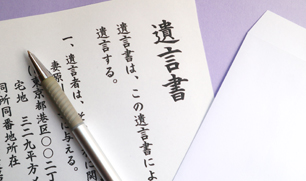 遺言書
遺言者は、この遺言書によ
遺言する。
一、遺言者は、
妻原
に与える。
に関
東京都港区〇〇二丁
宅地 三二九平方メ
同所同番地所在